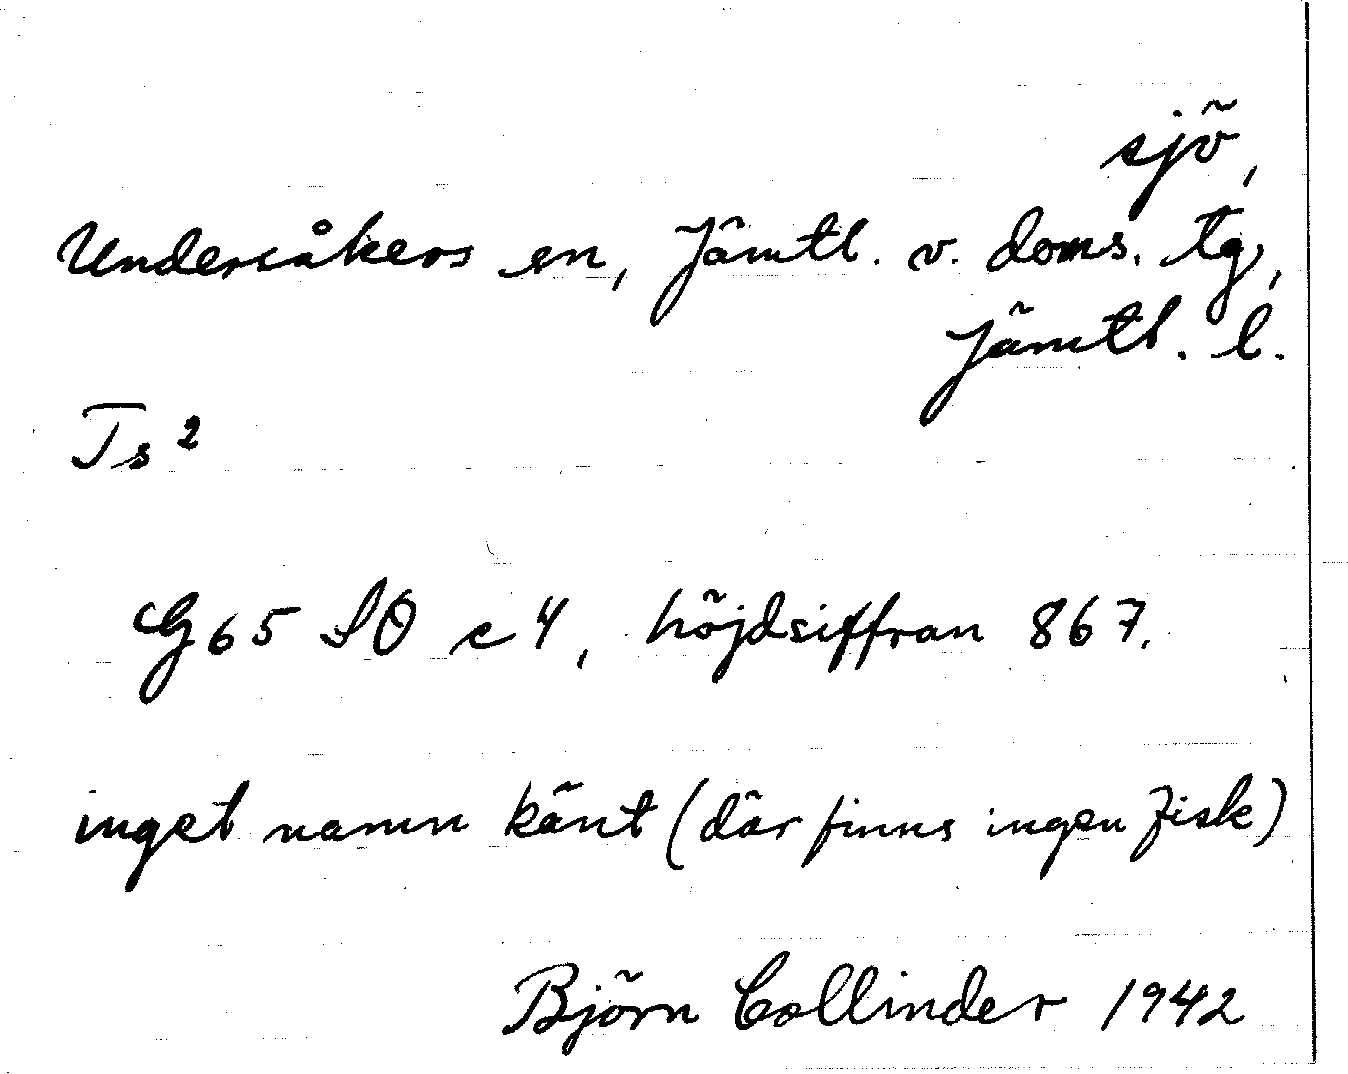 sjö,
Undersåkers en, Jämtl. v. doms. tg,
Jämtl. l.
Ts²
G65 SO c 4, höjdsiffran 867.
inget namn känt (där finns ingen fisk)
Björn Collinder 1942